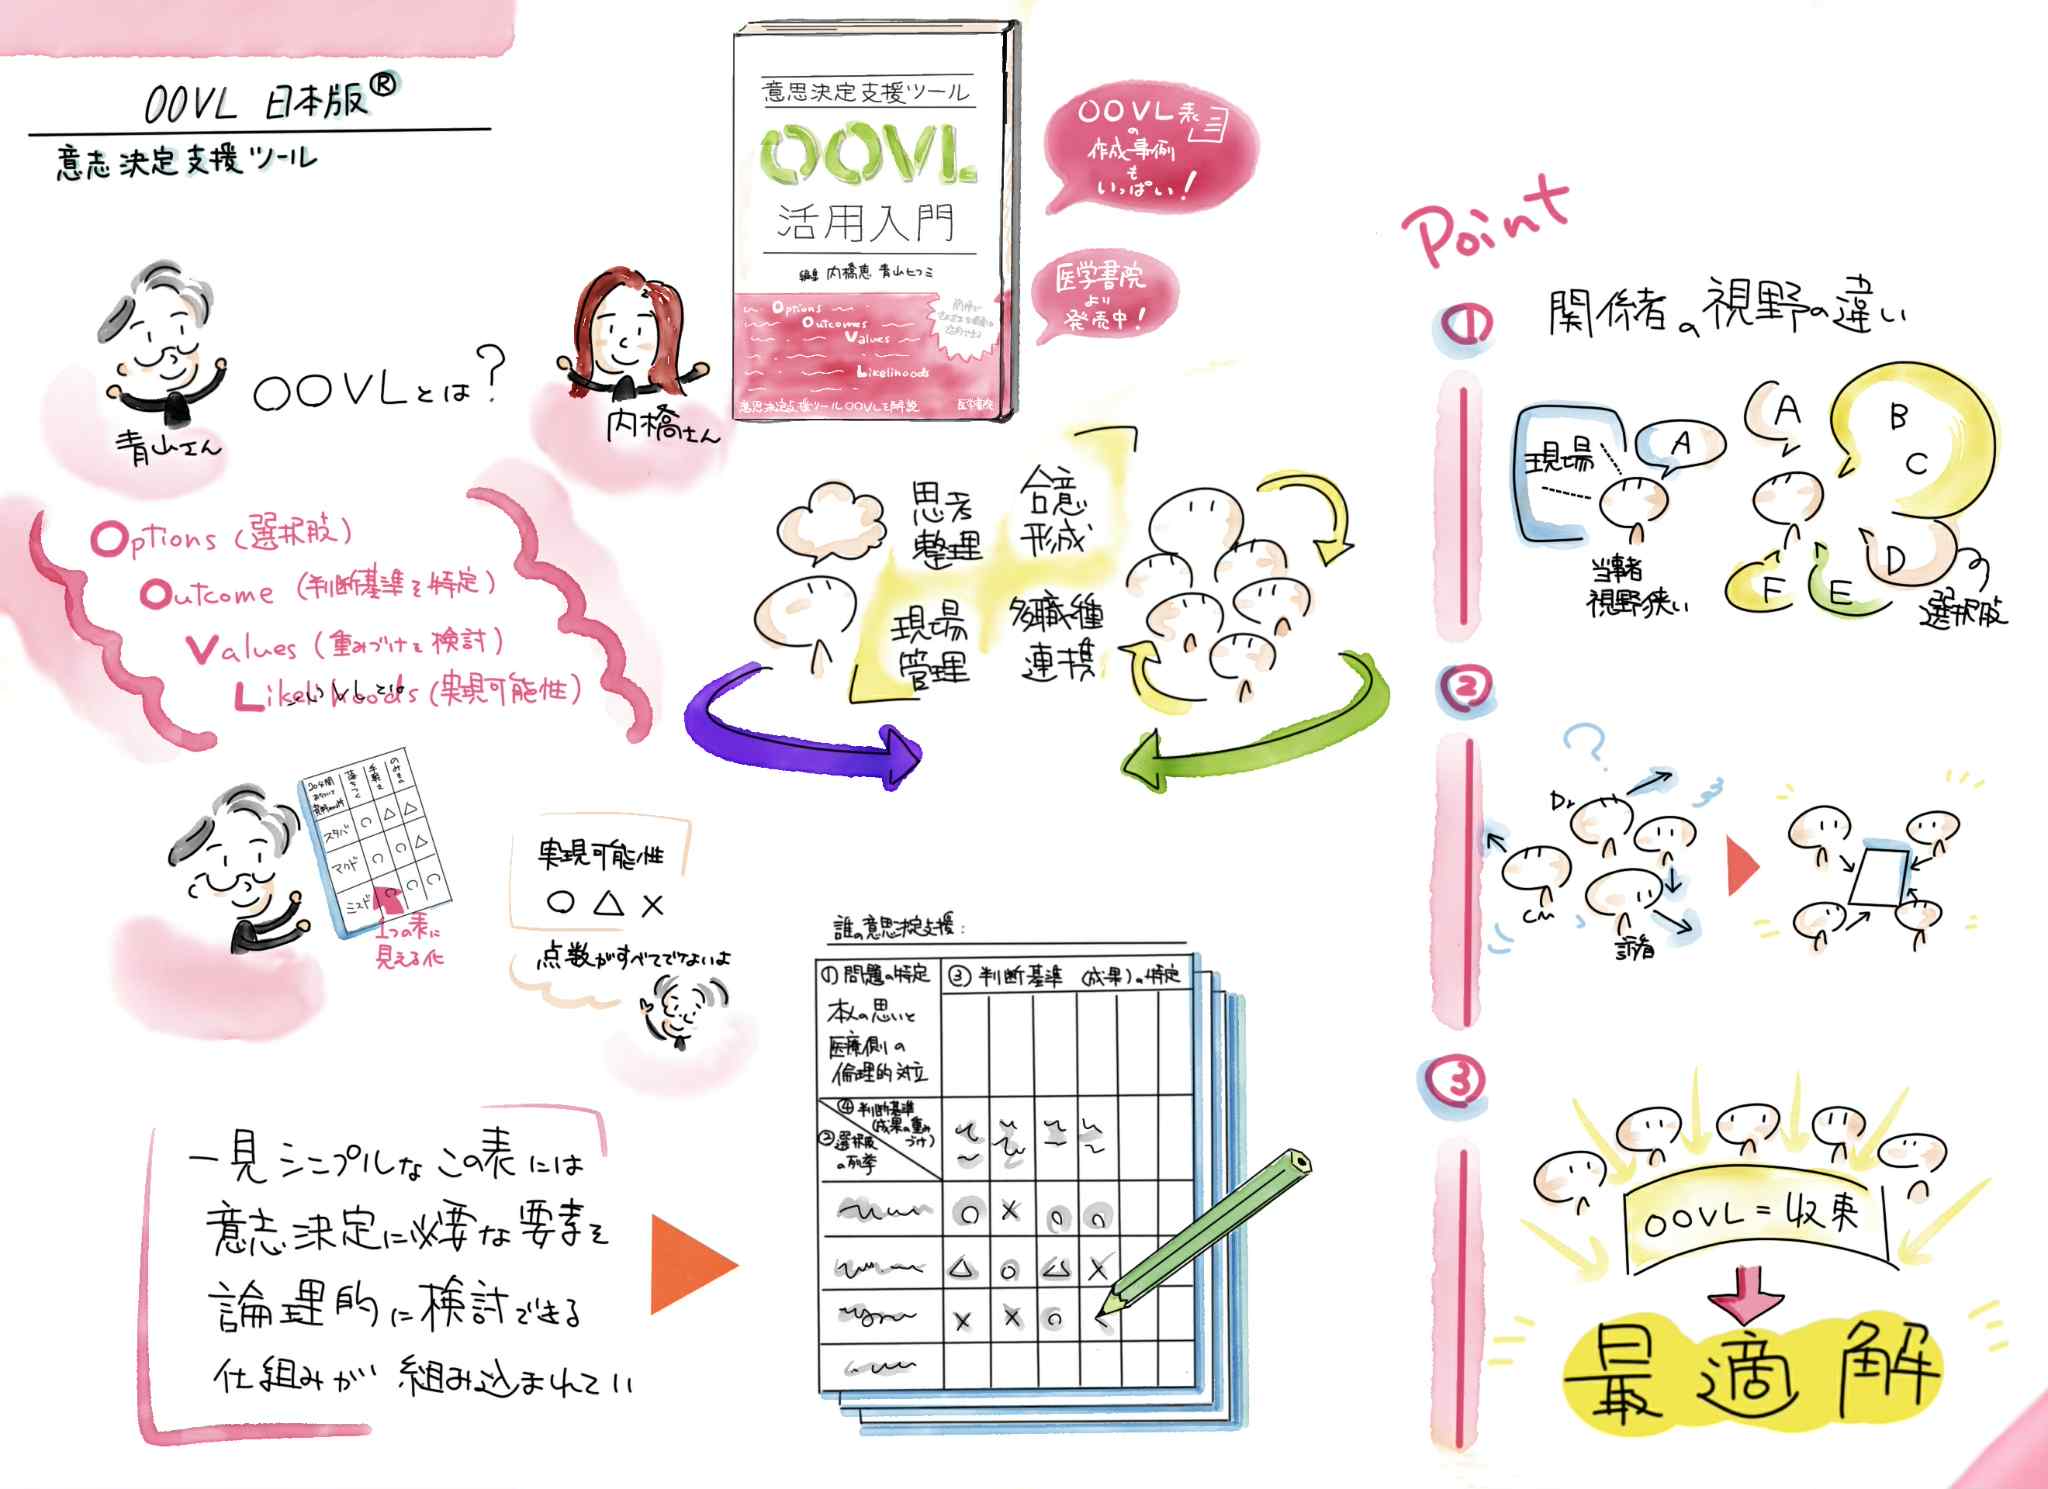 OOVL 日本版®
意志決定支援ツール
青山さん
OOVLとは?
内橋さん
Options (選択肢)
Outcome (判断基準を特定)
Values (重みづけを検討)
Likelihoods (実現可能性)
意思決定支援ツール
OOVL
活用入門
編集 内橋恵 青山ヒフミ
Options
Outcomes
Values
Likelihoods
意思決定支援ツールOOVLを解説
医学書院
OOVL表
の
作成事例
も
いっぱい!
医学書院
より
発売中!
思考
整理
合意
形成
現場
管理
多職種
連携
落ちつく
手軽さ
スタバ
○
△
△
マクド
○
○
△
ミスド
○
○
○
1つの表に
見える化
実現可能性
○ △ ×
点数がすべてでないよ
一見シンプルなこの表には
意志決定に必要な要素を
論理的に検討できる
仕組みが組み込まれてい
誰の意思決定支援:
①問題の特定
本人の思いと
医療側の
倫理的対立
③判断基準 (成果)の特定
④判断基準
(成果の重み
づけ)
②選択肢
の列挙
○ × ○ ○
△ ○ △ ×
× × ○
Point
①
関係者の視野の違い
現場
A
当事者
視野狭い
A
B
C
D
E
F
選択肢
②
?
Dr
CM
訪看
③
OOVL=収束
最適解